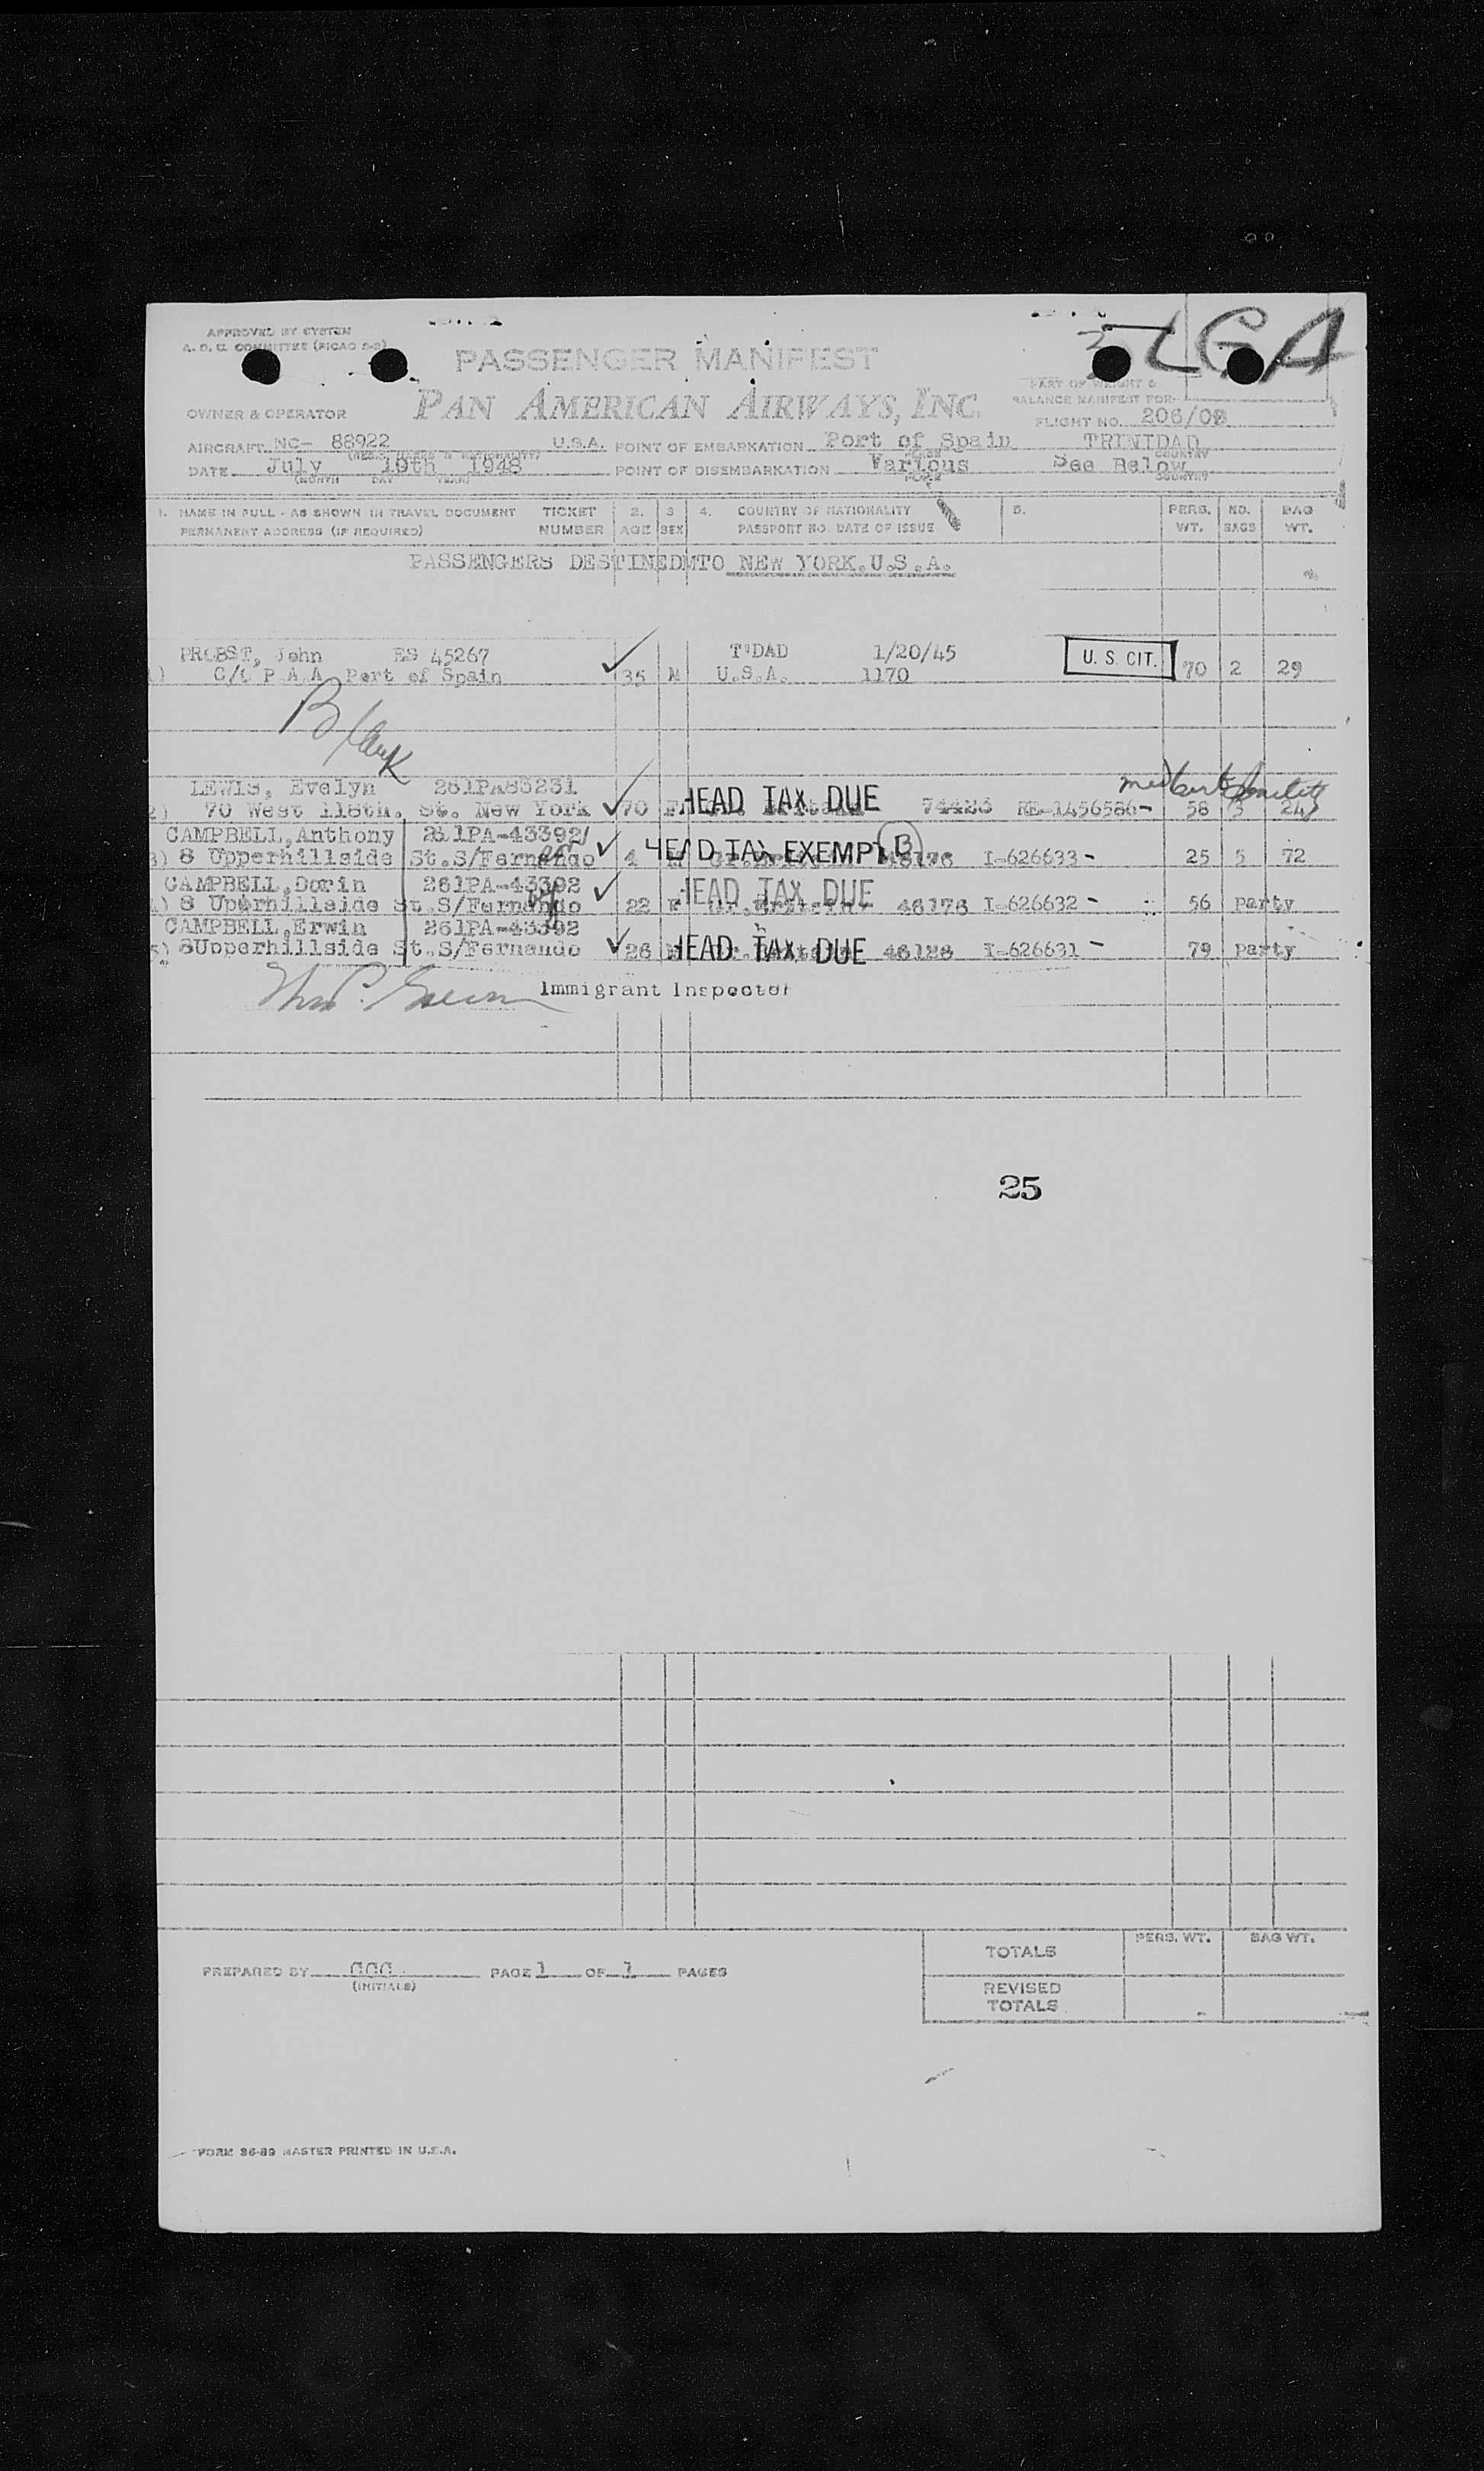 APPROVED BY SYSTEM
A. D. G. COMMITTEE (PICAO 2-3)
PASSENGER MANIFEST
LGA
PART OF WEIGHT &
BALANCE MANIFEST FOR
OWNER & OPERATOR PAN AMERICAN AIRWAYS, INC.
FLIGHT NO. 206/08
AIRCRAFT NC- 88922 U.S.A. POINT OF EMBARKATION Port of Spain TRINIDAD
DATE July 19th 1948 POINT OF DISEMBARKATION Various See Below
(MONTH DAY YEAR) COUNTRY
1. NAME IN FULL - AS SHOWN IN TRAVEL DOCUMENT TICKET 2. 3 4. COUNTRY OF NATIONALITY 5. PERS. NO. BAG
PERMANENT ADDRESS (IF REQUIRED) NUMBER AGE SEX PASSPORT NO. DATE OF ISSUE WT. BAGS WT.
PASSENGERS DESTINED TO NEW YORK, U.S.A.
PROBST, John ES 45267 T'DAD 1/20/45 U. S. CIT.
C/O P A A Port of Spain 35 M U.S.A. 1170 70 2 29
Blank
LEWIS, Evelyn 261PA83231
2) 70 West 118th. St. New York 70 F HEAD TAX DUE 74423 RE-1456586- 58 3 24
CAMPBELL, Anthony 261PA-43392
3) 8 Upperhillside St.S/Fernando 4 M HEAD TAX EXEMPT B 46176 I-626633- 25 5 72
CAMPBELL, Dorin 261PA-43392
8 Uperhillside St.S/Fernando 22 F HEAD TAX DUE 46176 I-626632 - 56 party
CAMPBELL, Erwin 261PA-43392
5) 8Upperhillside St.S/Fernando 26 M HEAD TAX DUE 46128 I-626631 - 79 party
Immigrant Inspector
25
TOTALS PERS. WT. BAG WT.
PREPARED BY GGG PAGE 1 OF 1 PAGES
(INITIALS)
REVISED
TOTALS
FORM 36-89 MASTER PRINTED IN U.S.A.